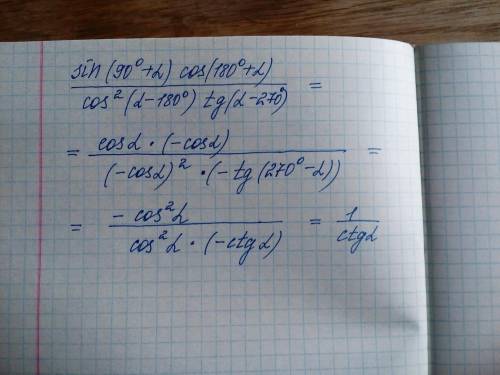 sin (90° + α) cos(180° + α) / cos² (α - 180°) tg (α - 270°) =
= cos α · (- cos α) / (- cos α)² · (- tg (270° - α)) =
= - cos² α / cos² α · (- ctg α) = 1 / ctg α